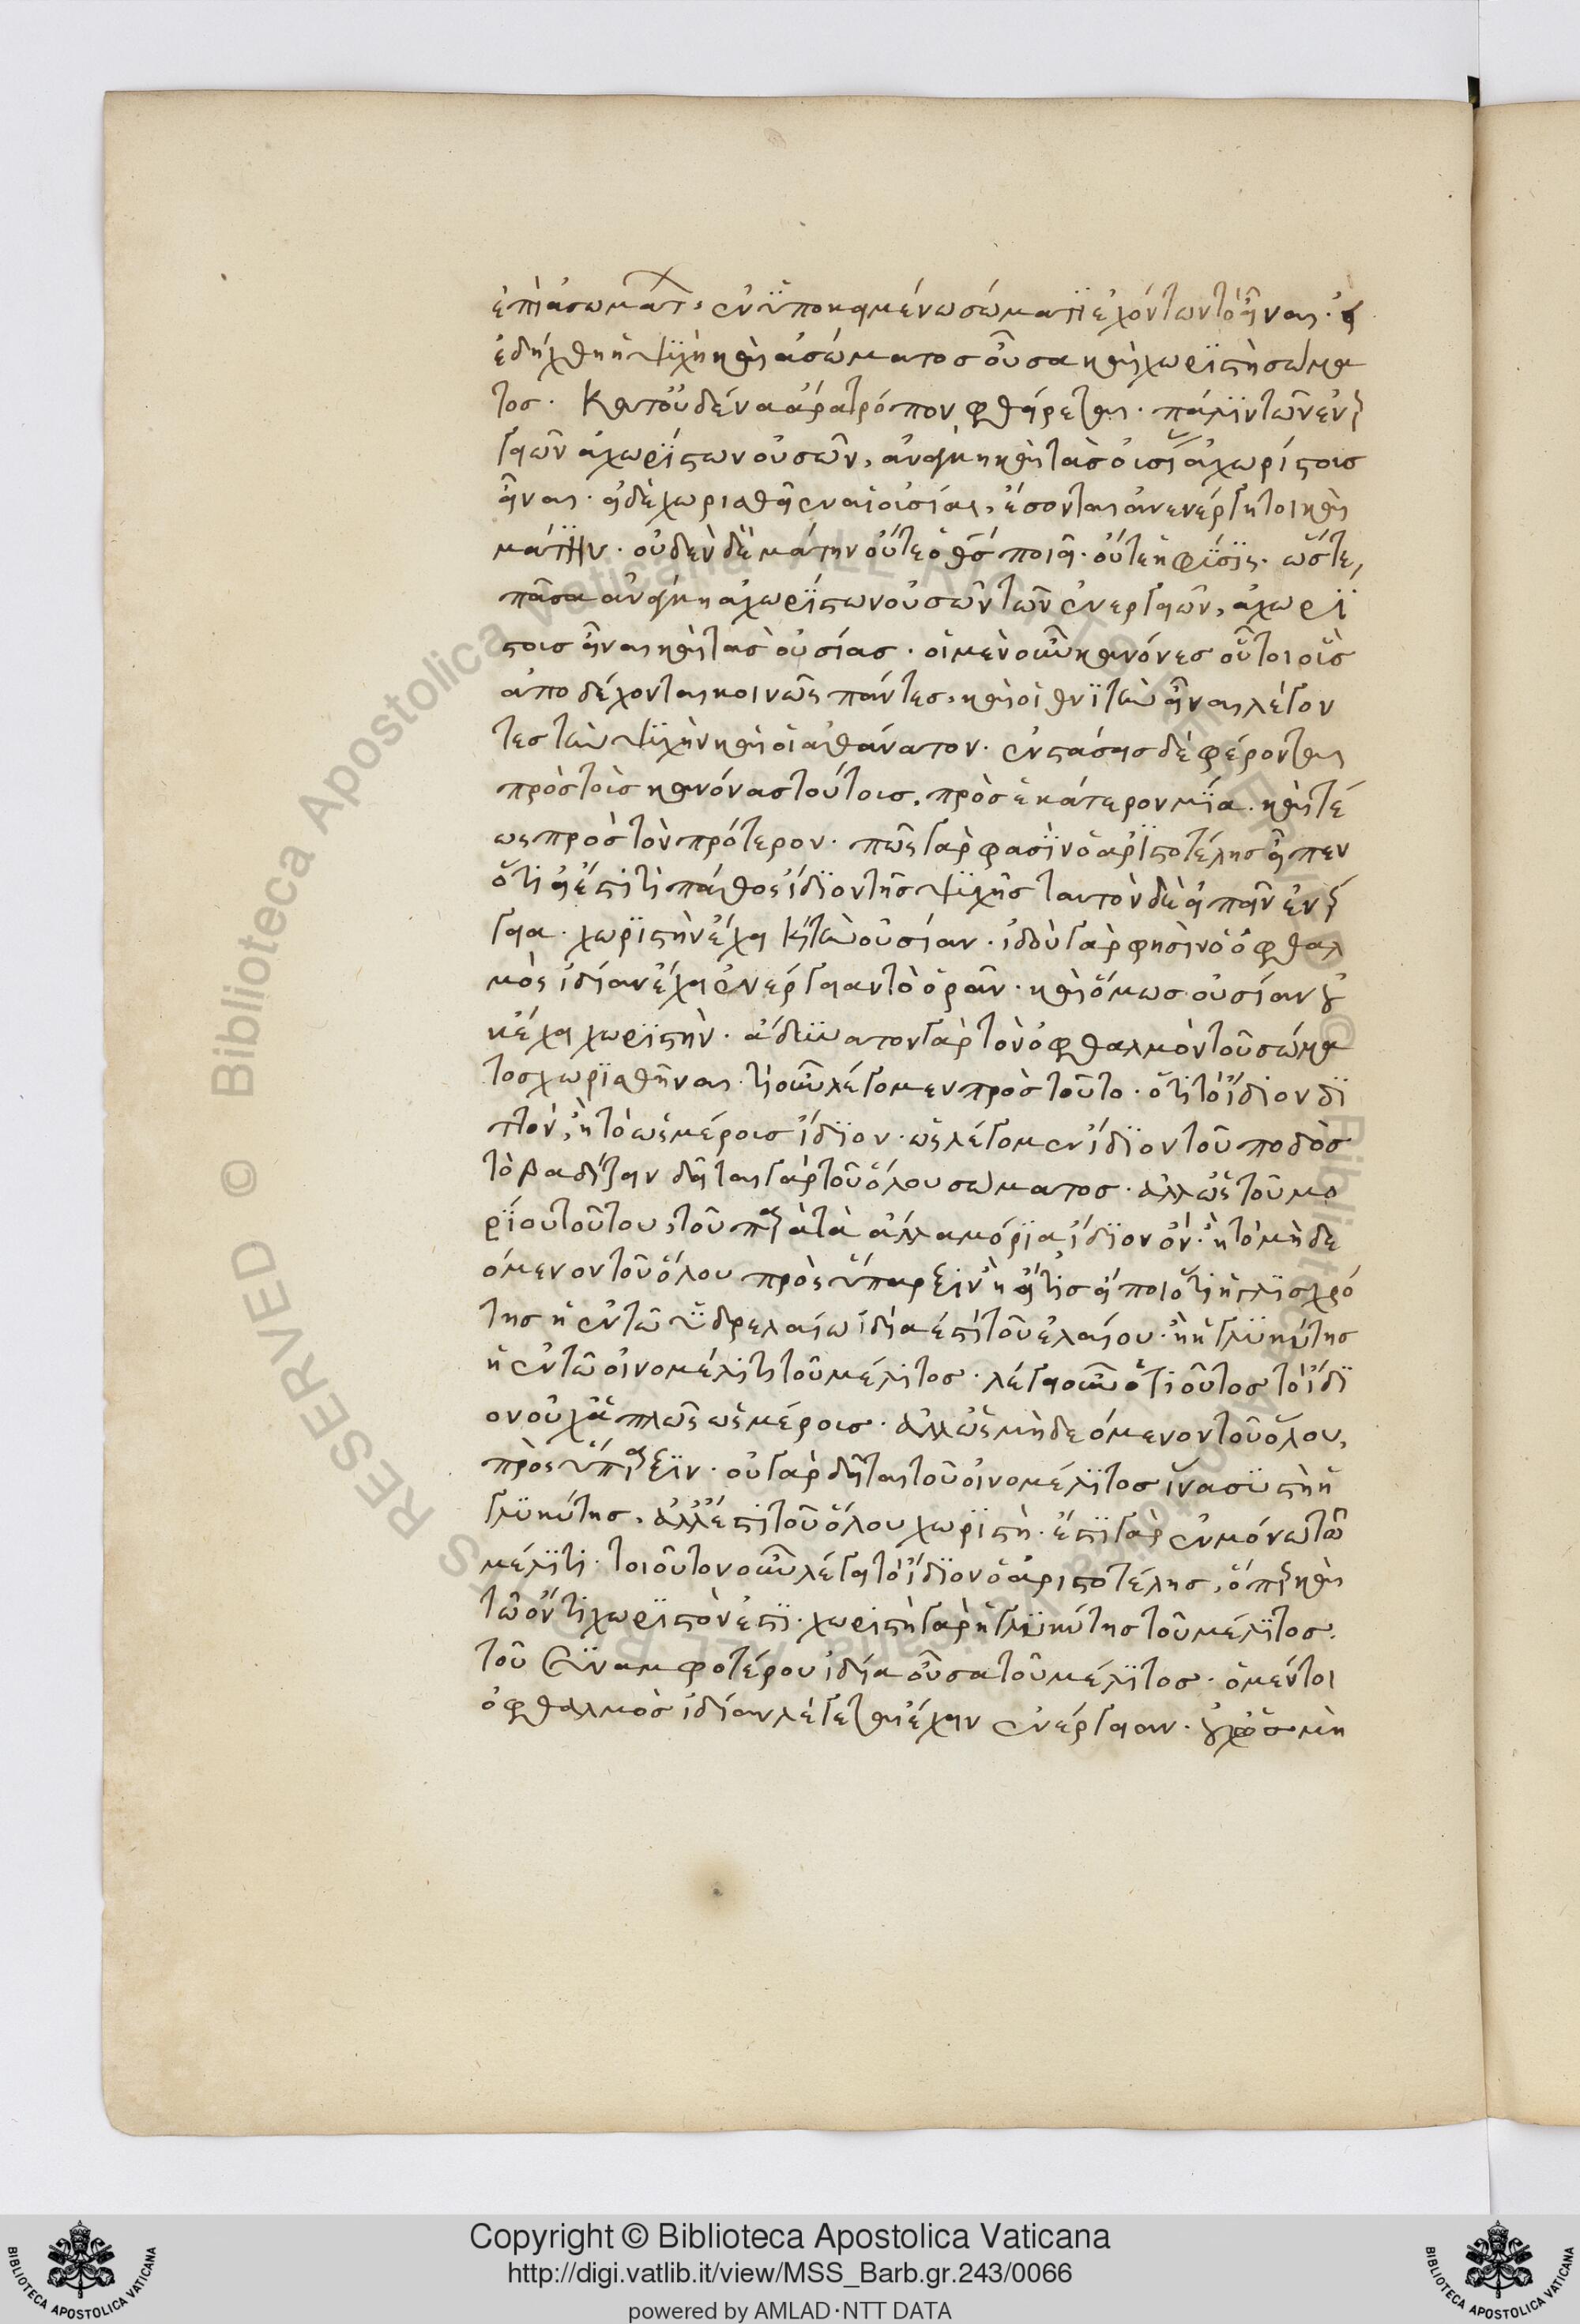 ἐπὶ ἀσωμάτ, ἐν ὑποκειμένω σώματι ἐχόντων τὸ εἶναι· εἰ
ἐδείχθη ἡ ψυχὴ καὶ ἀσώματος οὖσα καὶ χωριστὴ σώμα
τος· κατ' οὐδένα ἄρα τρόπον φθείρεται· πάλιν τῶν ἐνερ
γειῶν ἀχωρίστων οὐσῶν, ἀνάγκη καὶ τὰς οὐσί ἀχωρίστοις
εἶναι· εἰ δὲ χωρισθεῖεν αἱ οὐσίαι, ἔσονται ἀνενέργητοι καὶ
μάτην· οὐδὲν δὲ μάτην οὔτε ὁ θσ ποιεῖ· οὔτε ἡ φύσις· ὥστε,
πᾶσα ἀνάγκη ἀχωρίστων οὐσῶν τῶν ἐνεργειῶν, ἀχωρί
στοις εἶναι καὶ τὰς οὐσίας· οἱ μὲν οὖν κανόνες οὗτοι οἷς
ἀποδέχονται κοινῶς πάντες, καὶ οἱ θνητὴν εἶναι λέγον
τες τὴν ψυχὴν καὶ οἱ ἀθάνατον· ἐνστάσεις δὲ φέρονται
πρὸς τοὺς κανόνας τούτοις, πρὸς ἑκάτερον μία· καὶ τέ
ως πρὸς τὸν πρότερον· πῶς γάρ φασὶν ὁ ἀριστοτέλης εἶπεν
ὅτι εἰ ἔστι τι πάθος ἴδιον τῆς ψυχῆς ταυτὸν δὲ εἰπεῖν ἐνέρ
γεια· χωριστὴν ἔχει κ τὴν οὐσίαν· ἰδοὺ γάρ φησὶν ὁ ὀφθαλ
μὸς ἰδίαν ἔχει ἐνέργειαν τὸ ὁρᾶν· καὶ ὅμως οὐσίαν οὐ
κ ἔχει χωριστὴν· ἀδύνατον γὰρ τὸν ὀφθαλμὸν τοῦ σώμα
τος χωρισθῆναι· τί οὖν λέγομεν πρὸς τοῦτο· ὅτι τὸ ἴδιον δι
ττόν, ἢ τὸ ὡς μέροις ἴδιον· ὡς λέγομεν ἴδιον τοῦ ποδὸς
τὸ βαδίζειν δεῖται γὰρ τοῦ ὅλου σώματος· ἀλλ' ὡς τοῦ μο
ρίου τούτου, τοῦ παρὰ τὰ ἄλλα μόρια, ἴδιον ὄν· ἢ τὸ μὴ δε
όμενον τοῦ ὅλου πρὸς ὕπαρξιν ἢ εἴ τις εἴποι ὅτι ἡ γλισχρό
της ἡ ἐν τῶ ὑδρελαίω ἰδία ἐστὶ τοῦ ἐλαίου· ἢ ἡ γλυκύτης
ἡ ἐν τῶ οἰνομέλιτι τοῦ μέλιτος· λέγει οὖν ὅτι οὗτος τὸ ἴδι
ον οὐχ ἁπλῶς ὡς μέροις· ἀλλ' ὡς μὴ δεόμενον τοῦ ὅλου,
πρὸς ὕπαρξιν· οὐ γὰρ δεῖται τοῦ οἰνομέλιτος ἵνα συστῆ ἡ
γλυκύτης, ἀλλ' ἔστι τοῦ ὅλου χωριστὴ· ἔστι γὰρ ἐν μόνω τῶ
μέλιτι· τοιοῦτον οὖν λέγει τὸ ἴδιον ὁ ἀριστοτέλης, ὅπερ καὶ
τῶ ὄντι χωριστὸν ἐστὶ· χωριστὴ γὰρ ἡ γλυκύτης τοῦ μέλιτος.
τοῦ συναμφοτέρου ἰδία οὖσα τοῦ μέλιτος· ὁ μέντοι
ὀφθαλμὸς ἰδίαν λέγεται ἔχειν ἐνέργειαν· οὐχ ὡς μὴ
Copyright © Biblioteca Apostolica Vaticana
http://digi.vatlib.it/view/MSS_Barb.gr.243/0066
powered by AMLAD·NTT DATA